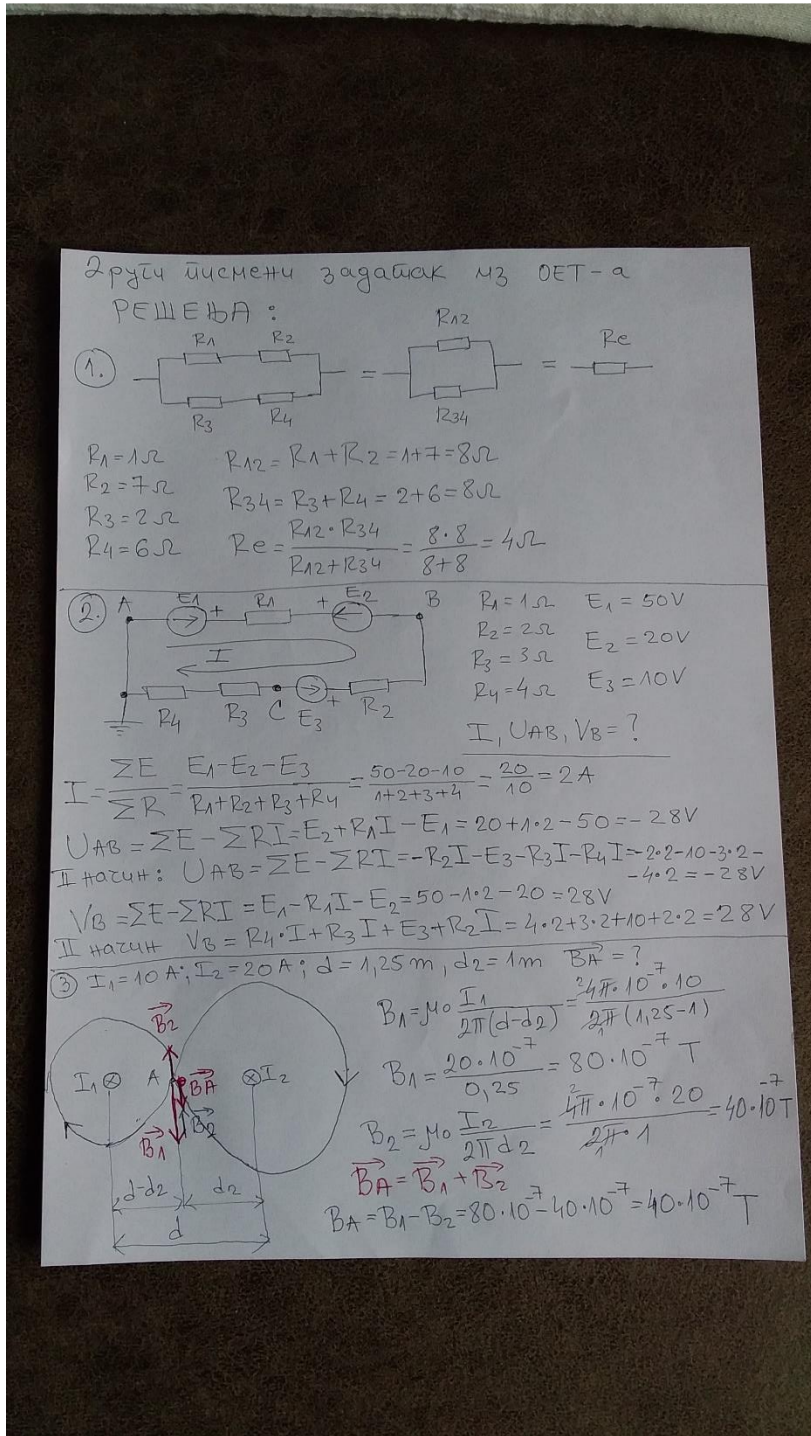 Други писмени задатак из ОЕТ-а
РЕШЕЊА :
1.
R1 R2
R3 R4
=
R12
R34
=
Re
R1=1Ω R12=R1+R2=1+7=8Ω
R2=7Ω
R3=2Ω R34=R3+R4=2+6=8Ω
R4=6Ω Re=R12·R34/R12+R34=8·8/8+8=4Ω
2. A E1 + R1 + E2 B
I
R4 R3 C E3 + R2
R1=1Ω E1=50V
R2=2Ω E2=20V
R3=3Ω
R4=4Ω E3=10V
I, UAB, VB=?
I=ΣE/ΣR=E1-E2-E3/R1+R2+R3+R4=50-20-10/1+2+3+4=20/10=2A
UAB=ΣE-ΣRI=E2+R1I-E1=20+1·2-50=-28V
II начин: UAB=ΣE-ΣRI=-R2I-E3-R3I-R4I=-2·2-10-3·2-
-4·2=-28V
VB=ΣE-ΣRI=E1-R1I-E2=50-1·2-20=28V
II начин VB=R4·I+R3I+E3+R2I=4·2+3·2+10+2·2=28V
3 I1=10A; I2=20A; d=1,25m, d2=1m BA=?
B2
I1 A BA I2
B2
B1
d-d2 d2
d
B1=μ0 I1/2π(d-d2)=²4π·10⁻⁷·10/2π₁(1,25-1)
B1=20·10⁻⁷/0,25=80·10⁻⁷T
B2=μ0 I2/2πd2=²4π·10⁻⁷·20/2π₁·1=40·10⁻⁷T
BA=B1+B2
BA=B1-B2=80·10⁻⁷-40·10⁻⁷=40·10⁻⁷T